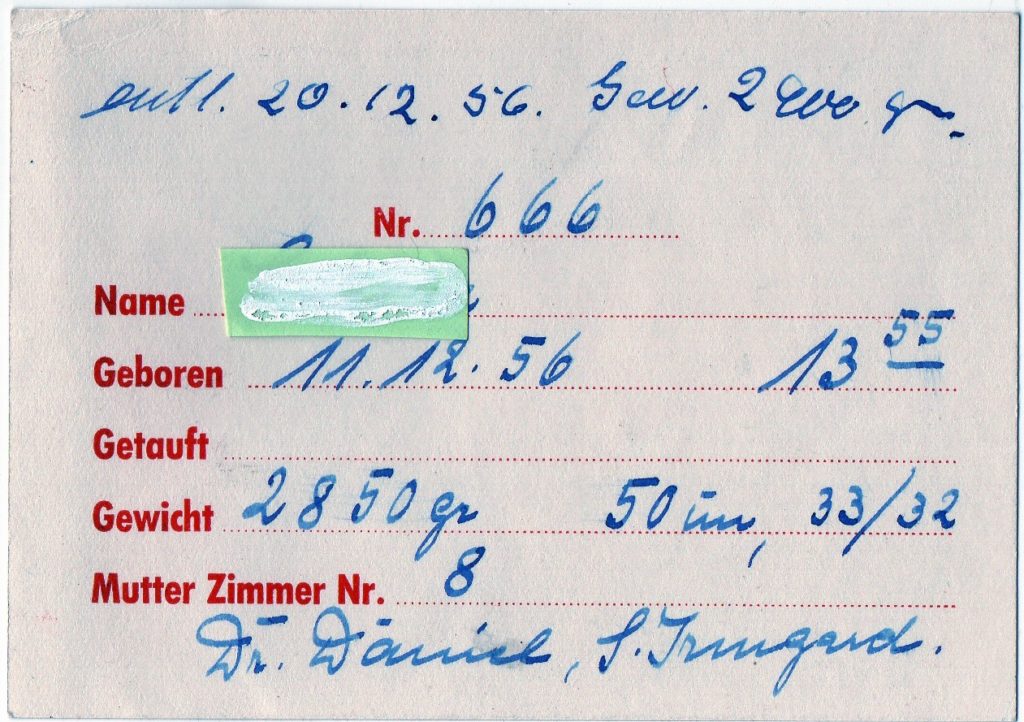 entl. 20.12.56. Gew. 2900 gr.
Nr. 666
Name
Geboren 11.12.56 13 55
Getauft
Gewicht 2850 gr 50 cm, 33/32
Mutter Zimmer Nr. 8
Dr. Däniel, S. Irmgard.